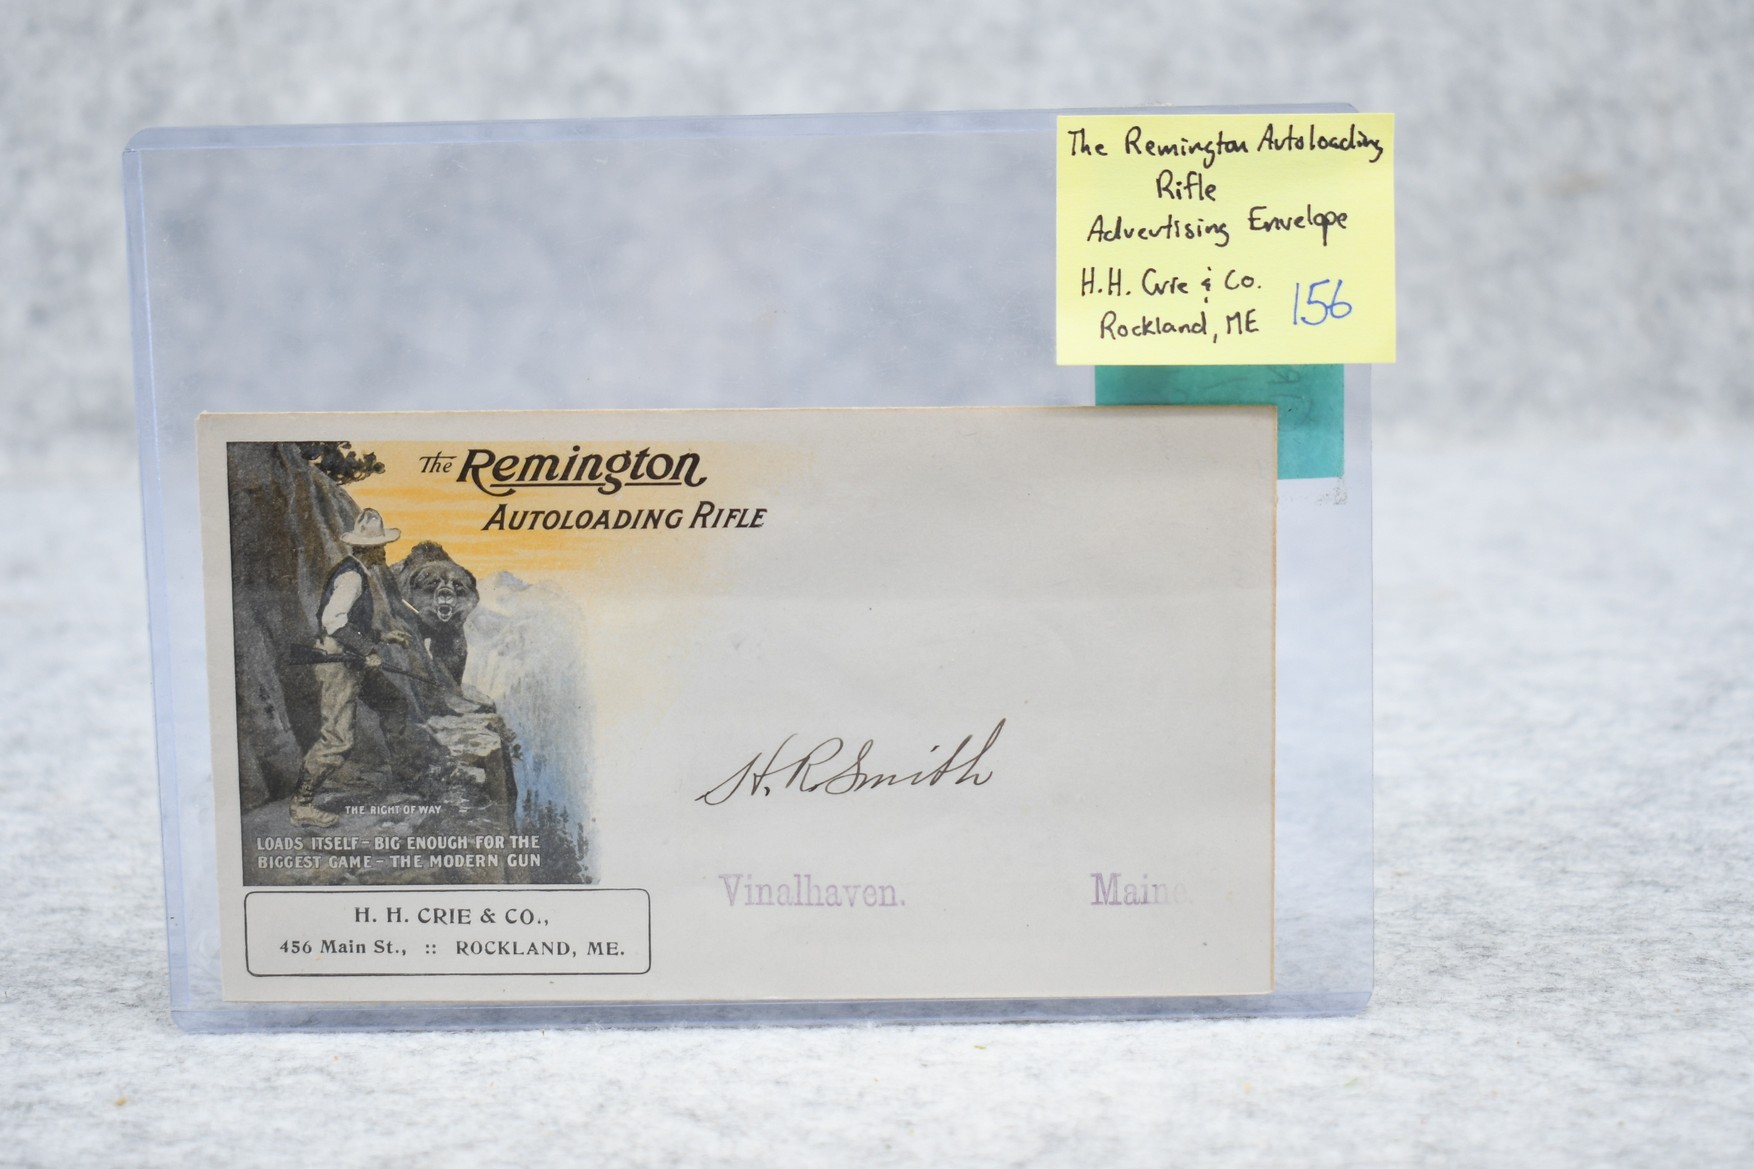 The Remington Autoloading
Rifle
Advertising Envelope
H.H. Crie & Co.
Rockland, ME 156
The Remington
AUTOLOADING RIFLE
THE RIGHT OF WAY
LOADS ITSELF - BIG ENOUGH FOR THE
BIGGEST GAME - THE MODERN GUN
H. H. CRIE & CO.,
456 Main St., :: ROCKLAND, ME.
H. R. Smith
Vinalhaven. Maine.